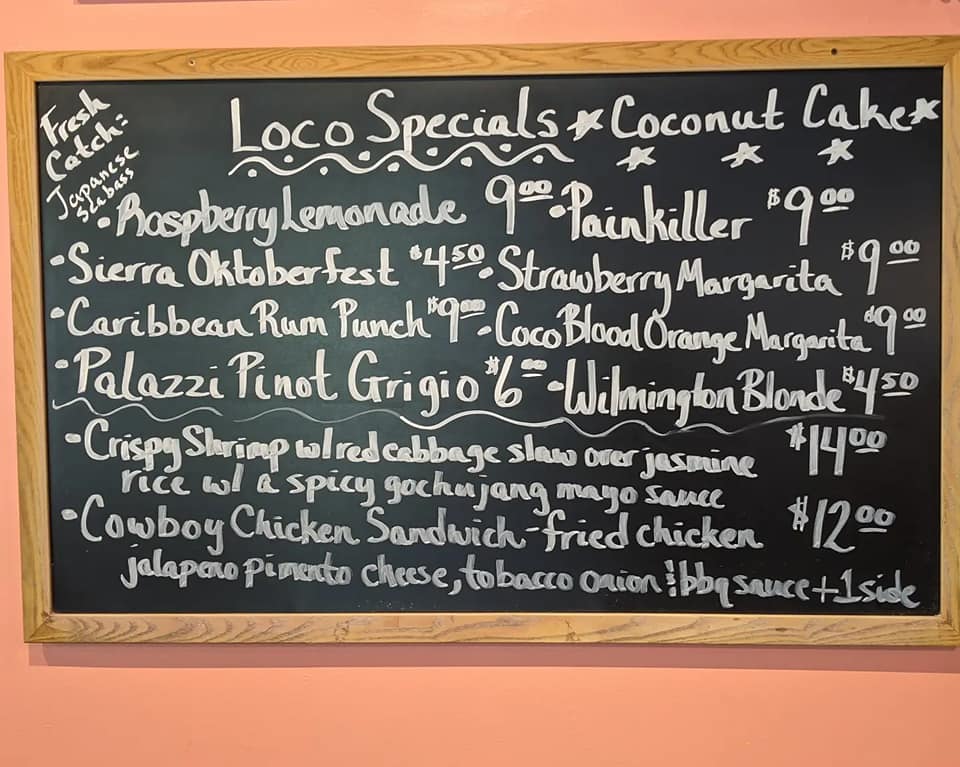 Fresh
Catch:
Japanese
Seabass
Loco Specials ☆ Coconut Cake ☆
• Raspberry Lemonade 9.00 • Painkiller $9.00
• Sierra Oktoberfest $4.50 • Strawberry Margarita $9.00
• Caribbean Rum Punch $9.00 • Coco Blood Orange Margarita $9.00
• Palazzi Pinot Grigio $6.00 • Wilmington Blonde $4.50
• Crispy Shrimp w/ red cabbage slaw over jasmine $14.00
rice w/ a spicy gochujang mayo sauce
• Cowboy Chicken Sandwich - fried chicken $12.00
jalapeno pimento cheese, tobacco onion & bbq sauce + 1 side